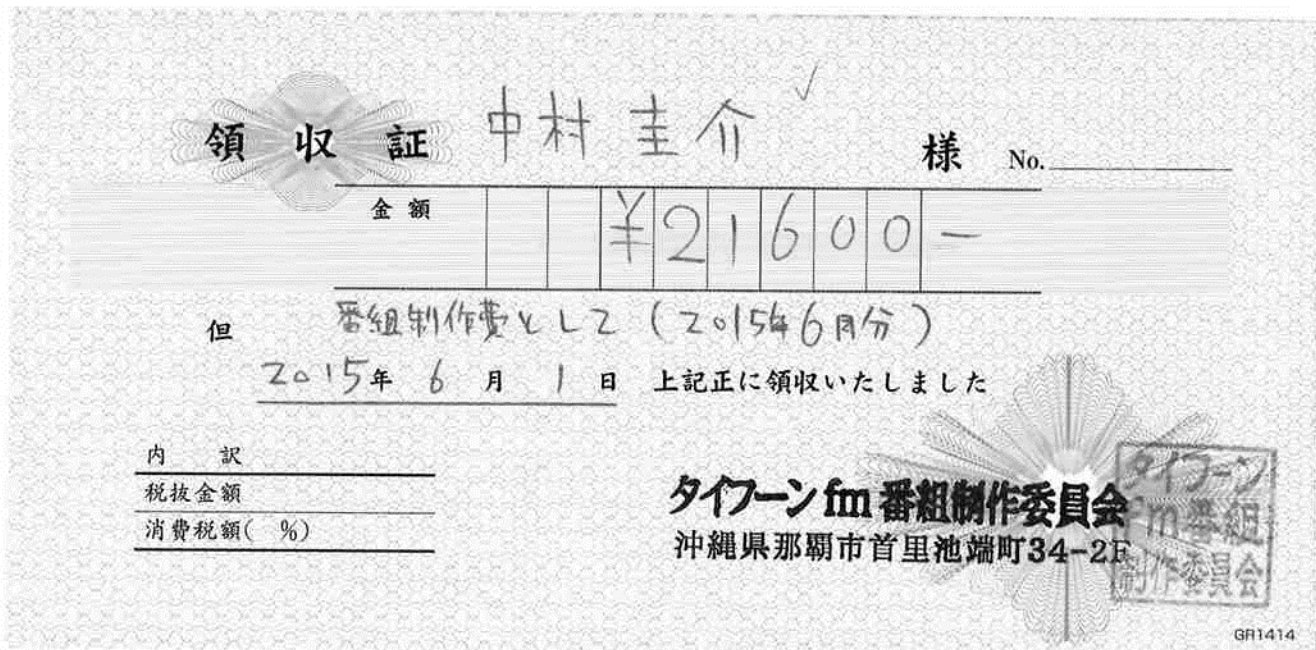 領収証 中村圭介 様 No.
金額 ¥21600-
但 番組制作費として(2015年6月分)
2015年 6月 1日 上記正に領収いたしました
内訳
税抜金額
消費税額( %)
タイフーンfm番組制作委員会
沖縄県那覇市首里池端町34-2F
タイフーン
fm番組
制作委員会
GR1414